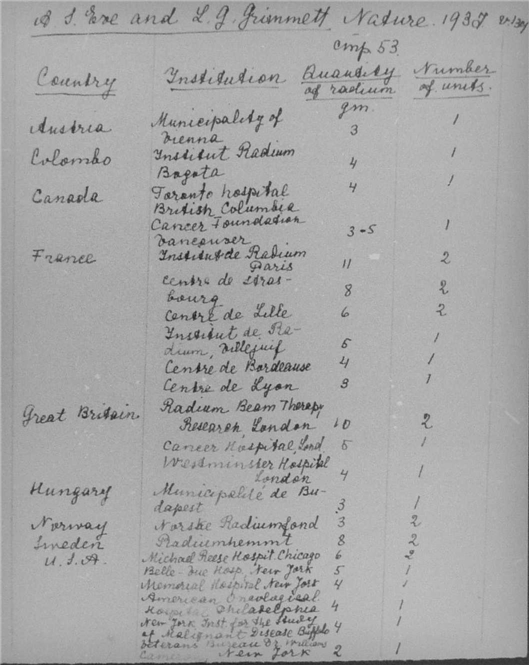 A. S. Eve and L. G. Grimmett, Nature. 1937
cmp 53
Country Institution Quantity of radium gm. Number of units.
Austria Municipality of
Vienna 3 1
Colombo Institut Radium
Bogota 4 1
Canada Toronto hospital 4 1
British Columbia
Cancer Foundation
Vancouver 3-5 1
France Institut de Radium
Paris 11 2
Centre de Stras-
bourg 8 2
Centre de Lille 6 2
Institut de Ra-
dium, Villejuif 5 1
Centre de Bordeause 4 1
Centre de Lyon 3 1
Great Britain Radium Beam Therapy
Research London 10 2
Cancer Hospital, Lond. 5 1
Westminster Hospital
London 4 1
Hungary Municipalité de Bu-
dapest 3 1
Norway Norske Radiumfond 3 2
Sweden Radiumhemmt 8 2
U.S.A. Michael Reese Hospit. Chicago 6 2
Belle-Due Hosp. New York 5 1
Memorial Hospital New York 4 1
American Oncological
Hospital Philadelphia 4 1
New York Inst for the Study
of Malignant Disease Buffalo 4 1
Veterans Bureau Dr William
New York 2 1